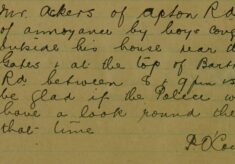 Mr. Ackers of Apton Rd
of annoyance by boys cong
outside his house near the
Gates & at the top of Bart
Rd. between 8 & 9 pm
be glad if the Police w
have a look round the
that time